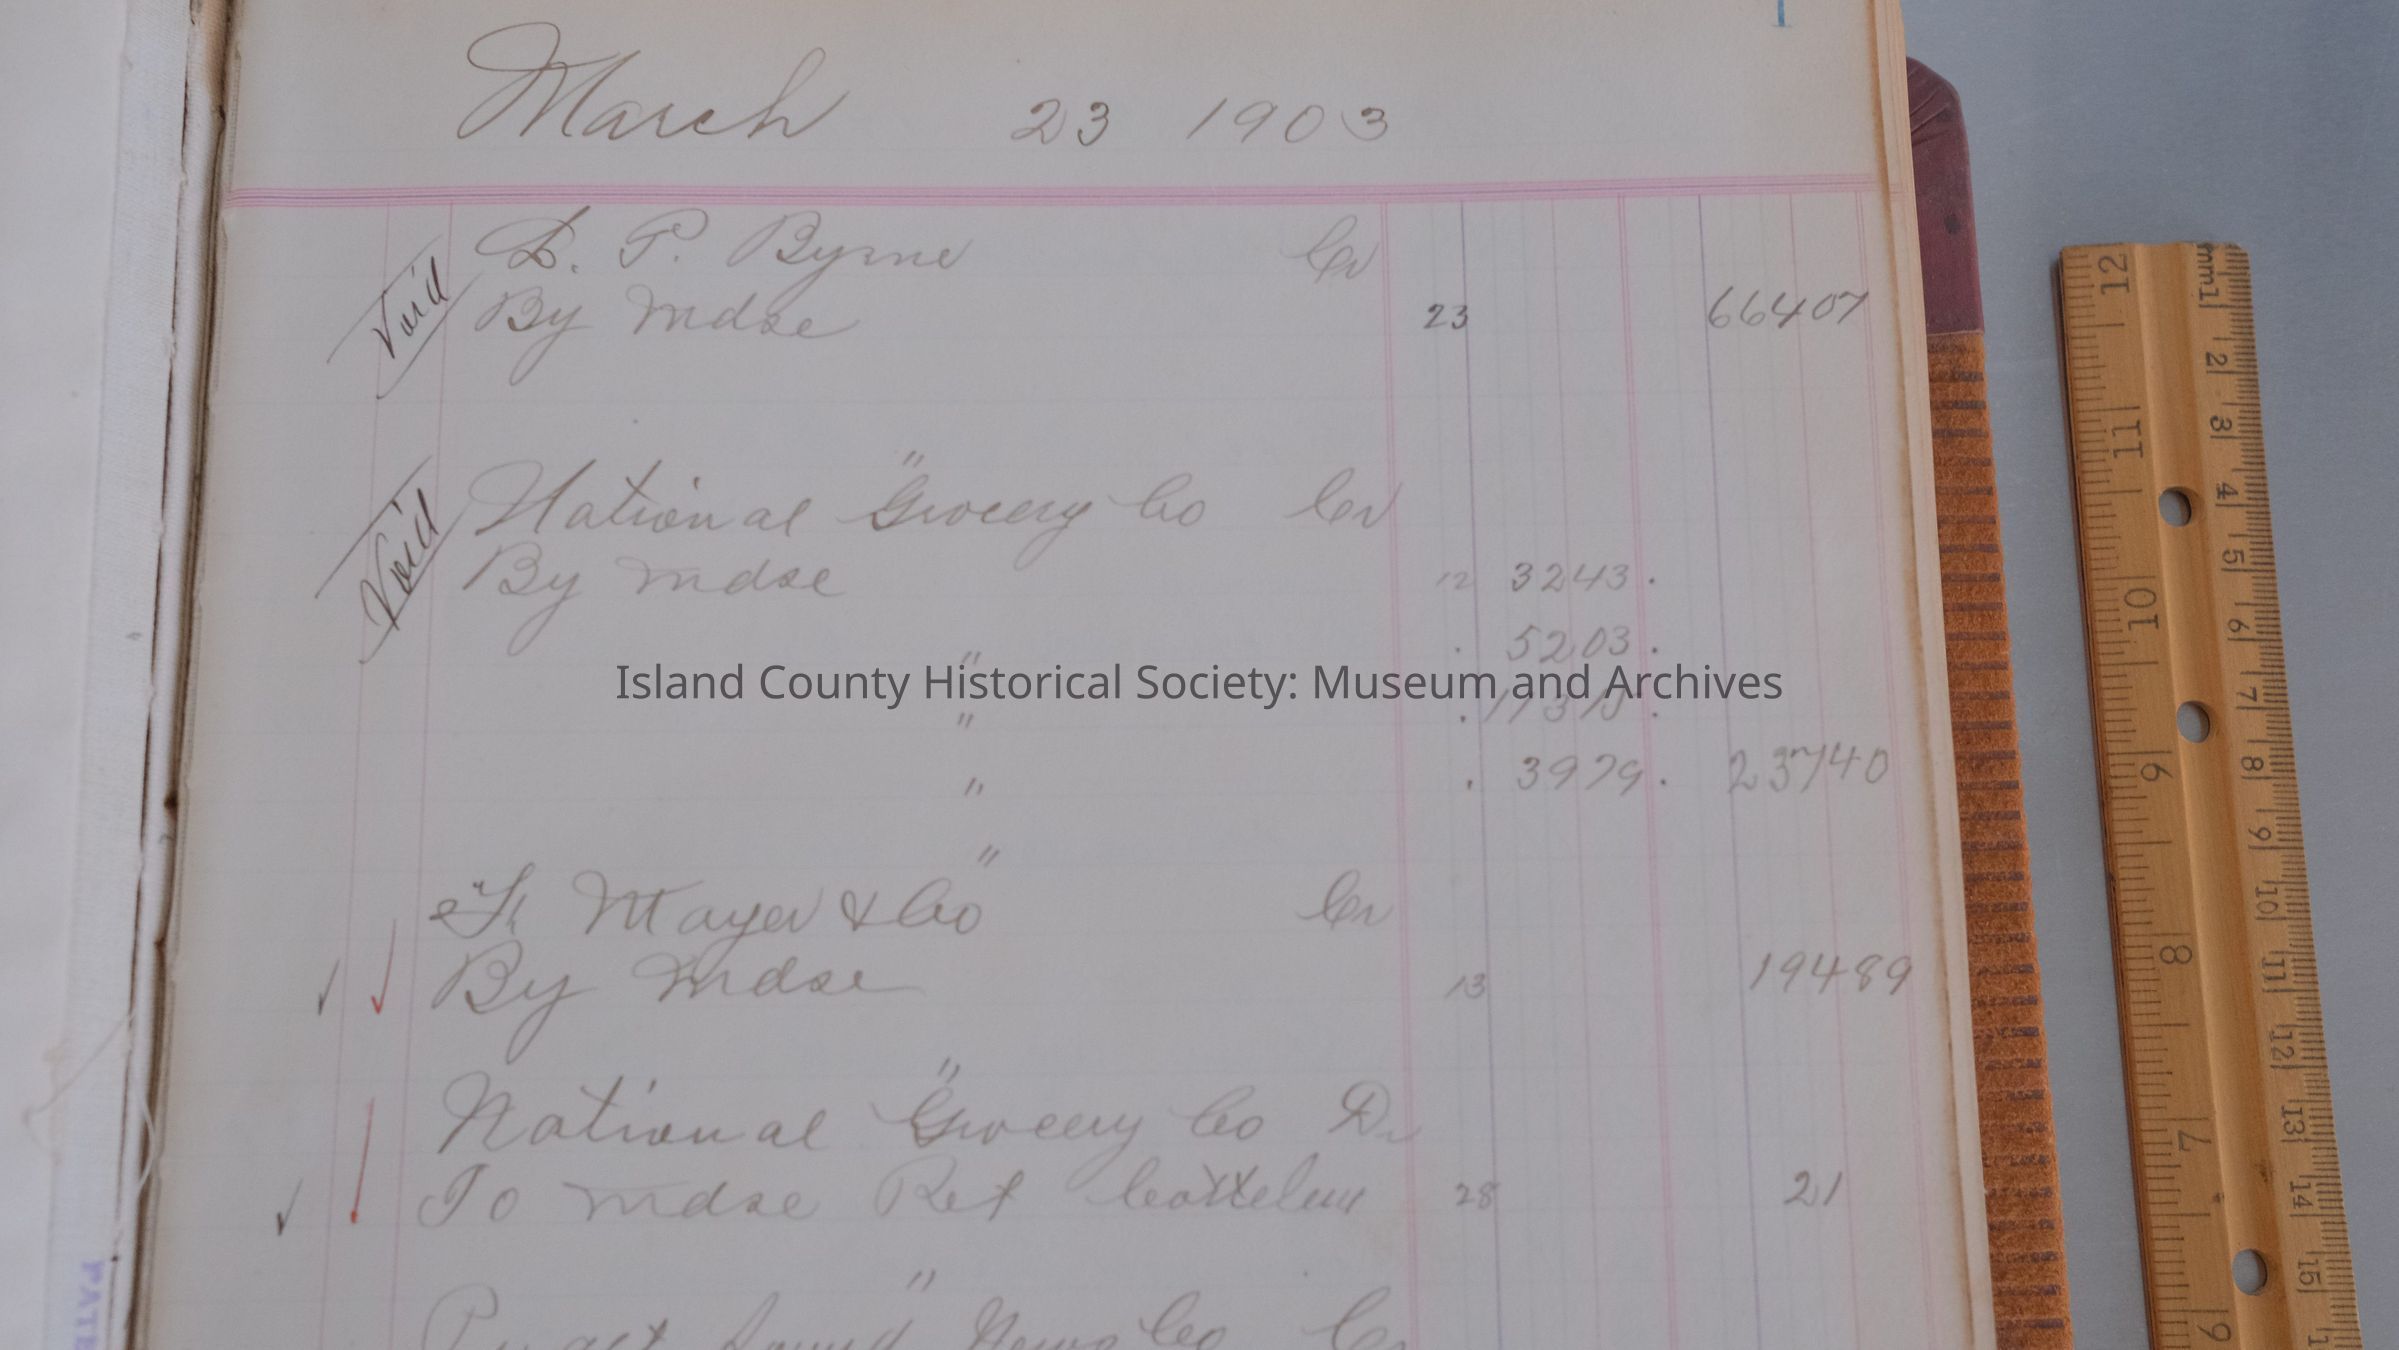 March 23 1903
Void
D. P. Byrne Cr
By mdse 23 66407
"
Void
National Grocery Co Cr
By mdse 12 3243 .
" . 5203 .
Island County Historical Society: Museum and Archives
" . 11315 .
" . 3979 . 23740
"
Mayer & Co Cr
By mdse 13 19489
"
National Grocery Co Dr
To mdse Ret 28 21
"
Puget Sound News Co Cr
12
11
10
9
8
7
mm1
2
3
4
5
6
7
8
9
10
11
12
13
14
15